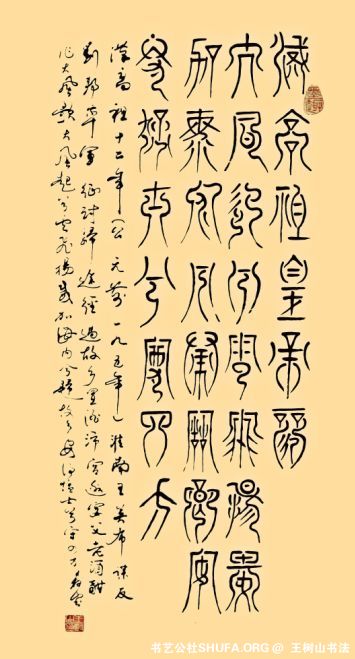 漢高祖皇帝
大風起兮雲飛揚威
加海內兮歸故鄉安
得猛士兮守四方
漢高祖十二年（公元前一九五年）淮南王英布謀反
劉邦率軍征討歸途經過故乡里沛宮邀宴父老酒酣
作大風歌大風起兮雲飛揚威加海內兮歸故乡安得猛士兮守四方
书艺公社SHUFA.ORG @ 王树山书法